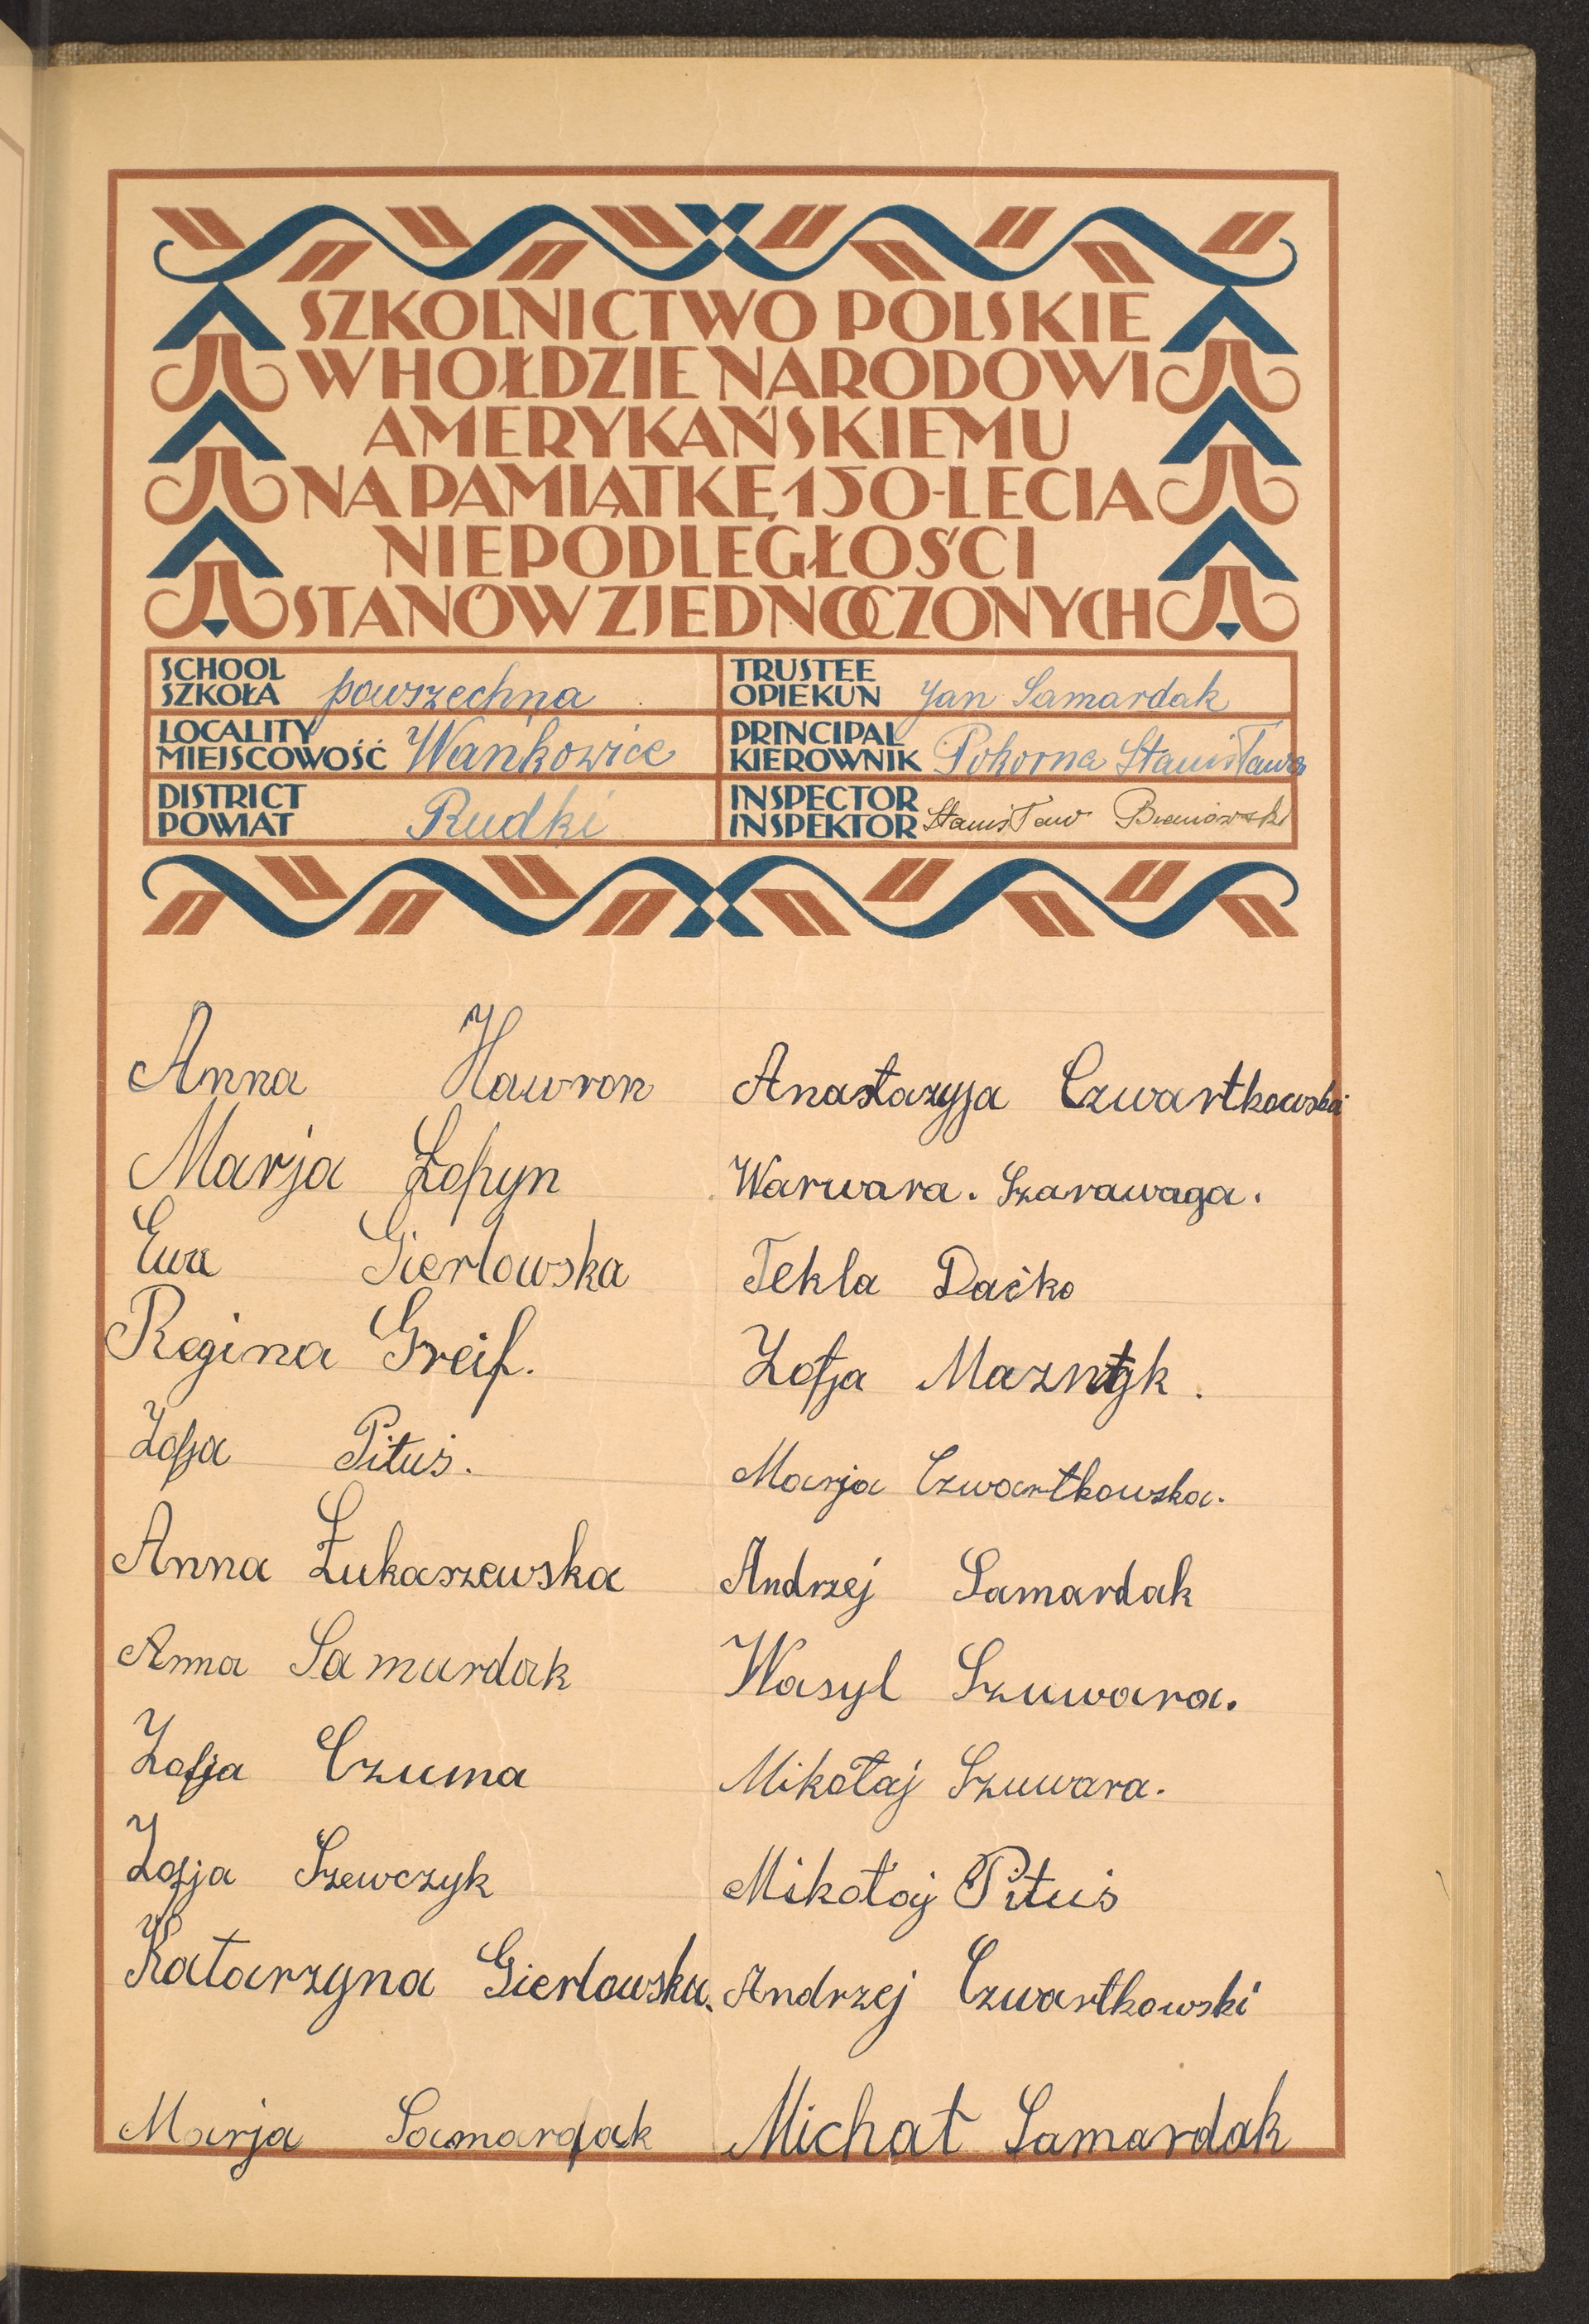 SZKOLNICTWO POLSKIE
W HOŁDZIE NARODOWI
AMERYKAŃSKIEMU
NA PAMIĄTKĘ 150-LECIA
NIEPODLEGŁOŚCI
STANÓW ZJEDNOCZONYCH
SCHOOL
SZKOŁA powszechna
LOCALITY
MIEJSCOWOŚĆ Wańkowice
DISTRICT
POWIAT Rudki
TRUSTEE
OPIEKUN Jan Samardak
PRINCIPAL
KIEROWNIK Pokorna Stanisława
INSPECTOR
INSPEKTOR Stanisław
Anna Hawron
Marja Łopyn
Ewa Gierlowska
Regina Greif.
Zofja Pituś.
Anna Łukaszewska
Anna Samardak
Zofja Czuma
Zofja Szewczyk
Katarzyna Gierlowska.
Marja Samardak
Anastazyja Czwartkowska
Warwara. Szarawaga.
Tekla Daćko
Zofja
Marja Czwartkowska.
Andrzej Samardak
Wasyl Szuwara.
Mikołaj Szuwara.
Mikołaj Pituś
Andrzej Czwartkowski
Michał Samardak